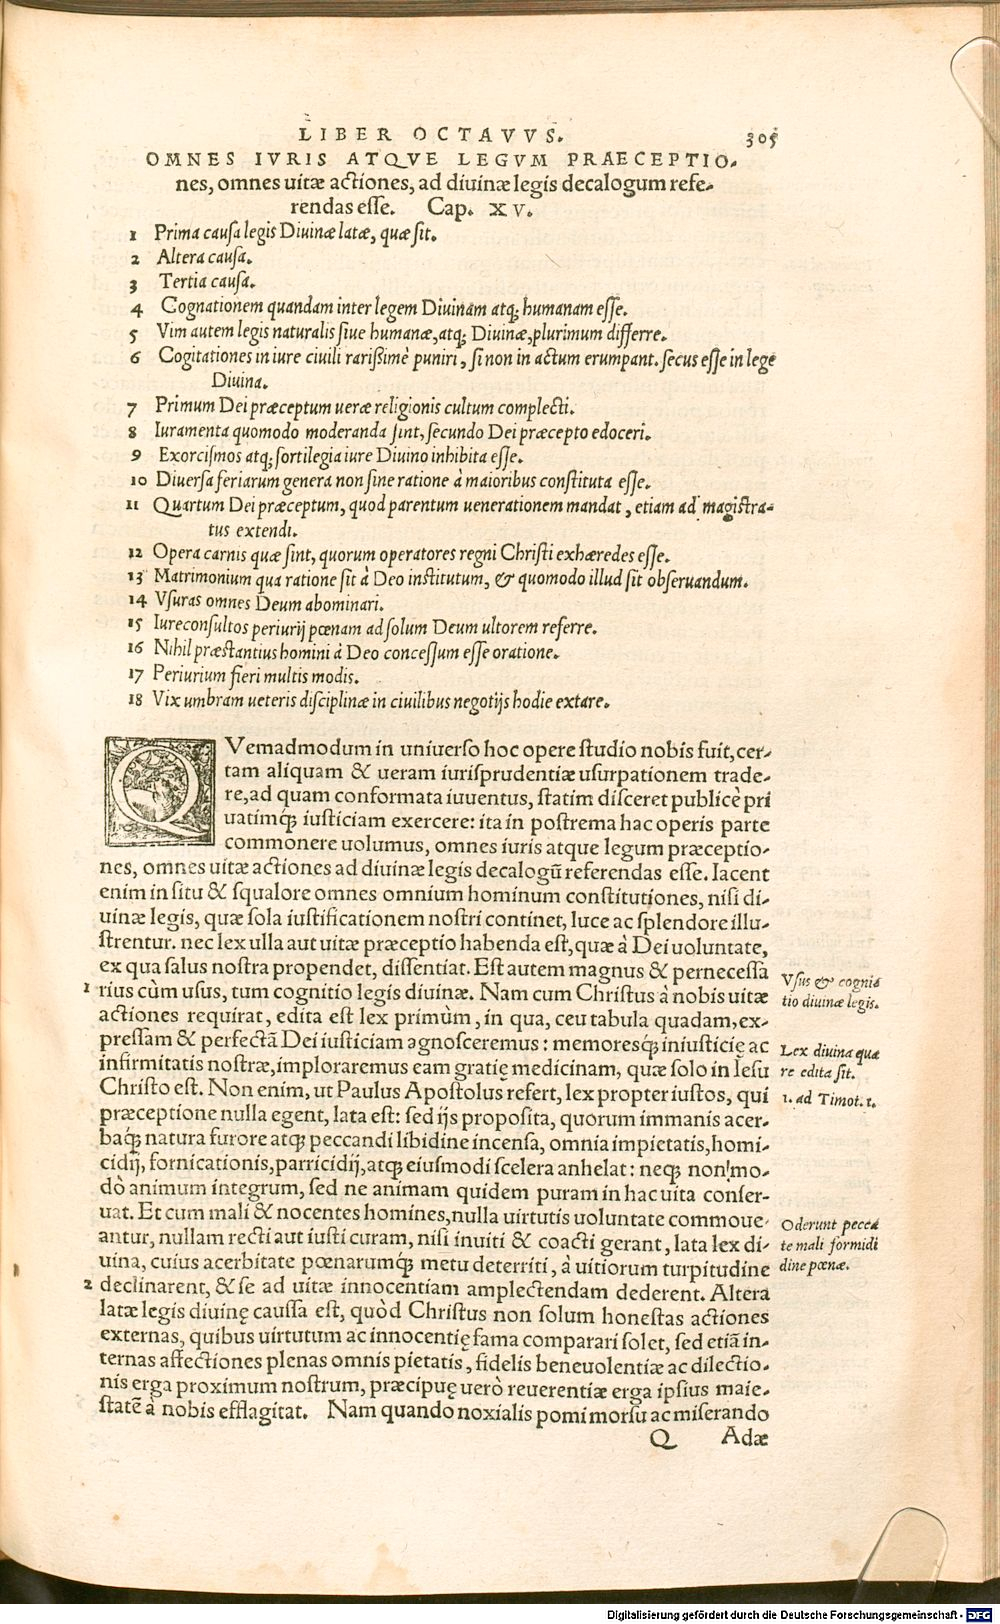 LIBER OCTAVVS. 305
OMNES IVRIS ATQVE LEGVM PRAECEPTIO-
nes, omnes uitæ actiones, ad diuinæ legis decalogum refe-
rendas esse. Cap. XV.
1 Prima causa legis Diuinæ latæ, quæ sit.
2 Altera causa.
3 Tertia causa.
4 Cognationem quandam inter legem Diuinam atq; humanam esse.
5 Vim autem legis naturalis siue humanæ, atq; Diuinæ, plurimum differre.
6 Cogitationes in iure ciuili rarißimè puniri, si non in actum erumpant. secus esse in lege
Diuina.
7 Primum Dei præceptum ueræ religionis cultum complecti.
8 Iuramenta quomodo moderanda sint, secundo Dei præcepto edoceri.
9 Exorcismos atq; sortilegia iure Diuino inhibita esse.
10 Diuersa feriarum genera non sine ratione à maioribus constituta esse.
11 Quartum Dei præceptum, quod parentum uenerationem mandat, etiam ad magistra-
tus extendi.
12 Opera carnis quæ sint, quorum operatores regni Christi exhæredes esse.
13 Matrimonium qua ratione sit à Deo institutum, & quomodo illud sit obseruandum.
14 Vsuras omnes Deum abominari.
15 Iureconsultos periurij pœnam ad solum Deum ultorem referre.
16 Nihil præstantius homini à Deo concessum esse oratione.
17 Periurium fieri multis modis.
18 Vix umbram ueteris disciplinæ in ciuilibus negotijs hodie extare.
QVemadmodum in uniuerso hoc opere studio nobis fuit, cer-
tam aliquam & ueram iurisprudentiæ usurpationem trade-
re, ad quam conformata iuuentus, statim disceret publicè pri
uatimq́; iusticiam exercere: ita in postrema hac operis parte
commonere uolumus, omnes iuris atque legum præceptio-
nes, omnes uitæ actiones ad diuinæ legis decalogū referendas esse. Iacent
enim in situ & squalore omnes omnium hominum constitutiones, nisi di-
uinæ legis, quæ sola iustificationem nostri continet, luce ac splendore illu-
strentur. nec lex ulla aut uitæ præceptio habenda est, quæ à Dei uoluntate,
ex qua salus nostra propendet, dissentiat. Est autem magnus & pernecessa
1 rius cùm usus, tum cognitio legis diuinæ. Nam cum Christus à nobis uitæ
actiones requirat, edita est lex primùm, in qua, ceu tabula quadam, ex-
pressam & perfectā Dei iusticiam agnosceremus: memoresq́; iniusticię ac
infirmitatis nostræ, imploraremus eam gratię medicinam, quæ solo in Iesu
Christo est. Non enim, ut Paulus Apostolus refert, lex propter iustos, qui
præceptione nulla egent, lata est: sed ijs proposita, quorum immanis acer-
baq́; natura furore atq; peccandi libidine incensa, omnia impietatis, homi-
cidij, fornicationis, parricidij, atq; eiusmodi scelera anhelat: neq; non mo-
dò animum integrum, sed ne animam quidem puram in hac uita conser-
uat. Et cum mali & nocentes homines, nulla uirtutis uoluntate commoue-
antur, nullam recti aut iusti curam, nisi inuiti & coacti gerant, lata lex di-
uina, cuius acerbitate pœnarumq́; metu deterriti, à uitiorum turpitudine
2 declinarent, & se ad uitæ innocentiam amplectendam dederent. Altera
latæ legis diuinę caussa est, quòd Christus non solum honestas actiones
externas, quibus uirtutum ac innocentię fama comparari solet, sed etiā in-
ternas affectiones plenas omnis pietatis, fidelis beneuolentiæ ac dilectio-
nis erga proximum nostrum, præcipuę uerò reuerentiæ erga ipsius maie-
statē à nobis efflagitat. Nam quando noxialis pomi morsu ac miserando
Q Adæ
Vsus & cogni
tio diuinæ legis.
Lex diuina qua
re edita sit.
1. ad Timot. 1.
Oderunt pecca
te mali formidi
dine pœnæ.
Digitalisierung gefördert durch die Deutsche Forschungsgemeinschaft - DFG